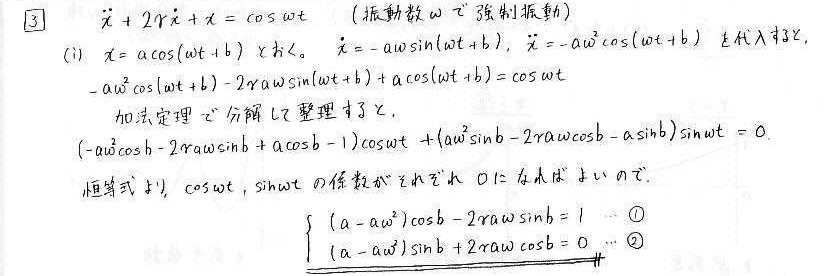 3 ẍ + 2γẋ + x = cos ωt (振動数ωで強制振動)
(i) x = a cos(ωt+b) とおく。 ẋ = -aω sin(ωt+b), ẍ = -aω² cos(ωt+b) を代入すると,
-aω² cos(ωt+b) - 2γaω sin(ωt+b) + a cos(ωt+b) = cos ωt
加法定理で分解して整理すると,
(-aω² cos b - 2γaω sin b + a cos b - 1) cos ωt + (aω² sin b - 2γaω cos b - a sin b) sin ωt = 0.
恒等式より, cos ωt, sin ωt の係数がそれぞれ 0になればよいので.
(a - aω²) cos b - 2γaω sin b = 1 … ①
(a - aω²) sin b + 2γaω cos b = 0 … ②